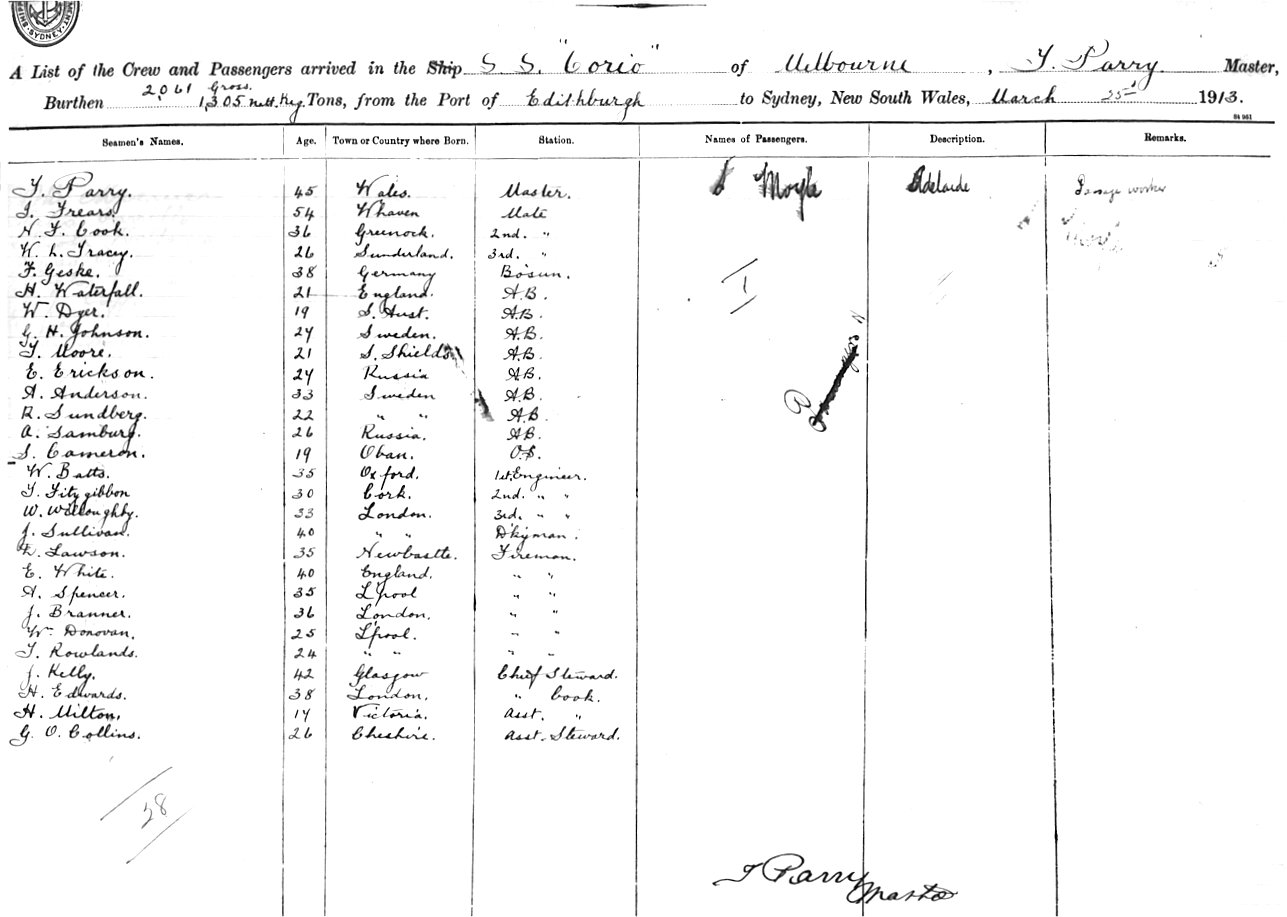 MENT. SHIPP
SYDNEY
A List of the Crew and Passengers arrived in the Ship S S. "Corio" of Melbourne, T. Parry. Master,
Burthen 2061 Gross. 1,305 nett. Reg Tons, from the Port of Edithburgh to Sydney, New South Wales, March 25 1913.
Seamen's Names. Age. Town or Country where Born. Station. Names of Passengers. Description. Remarks.
T. Parry. 45 Wales. Master. Moyle Adelaide worker
Frears. 54 Whaven Mate
Cook. 36 Greenock. 2nd. "
W. L. Tracey. 26 Sunderland. 3rd. "
F. Geske. 38 Germany Bosun.
H. Waterfall. 21 England. A.B. I
W. Dyer. 19 S. Aust. A.B.
G. H. Johnson. 24 Sweden. A.B.
T. Moore. 21 S. Shields A.B.
E. Erickson. 24 Russia A.B.
A. Anderson. 33 Sweden A.B.
R. Sundberg. 22 " " A.B.
A. Samburg. 26 Russia. A.B.
S. Cameron. 19 Oban. O.S.
W. Batts. 35 Oxford. 1st. Engineer.
T. Fitzgibbon 30 Cork. 2nd. " "
W. Willoughby. 33 London. 3rd. " "
J. Sullivan. 40 " " D'kyman.
Lawson. 35 Newcastle. Fireman.
E. White. 40 England. " "
A. Spencer. 35 L'pool " "
J. Branner. 36 London. " "
Wm Donovan. 25 L'pool. " "
T. Rowlands. 24 " " " "
J. Kelly. 42 Glasgow Chief Steward.
H. Edwards. 38 London. " Cook.
H. Milton. 17 Victoria. Asst. "
G. O. Collins. 26 Cheshire. Asst. Steward.
28
T Parry
Master